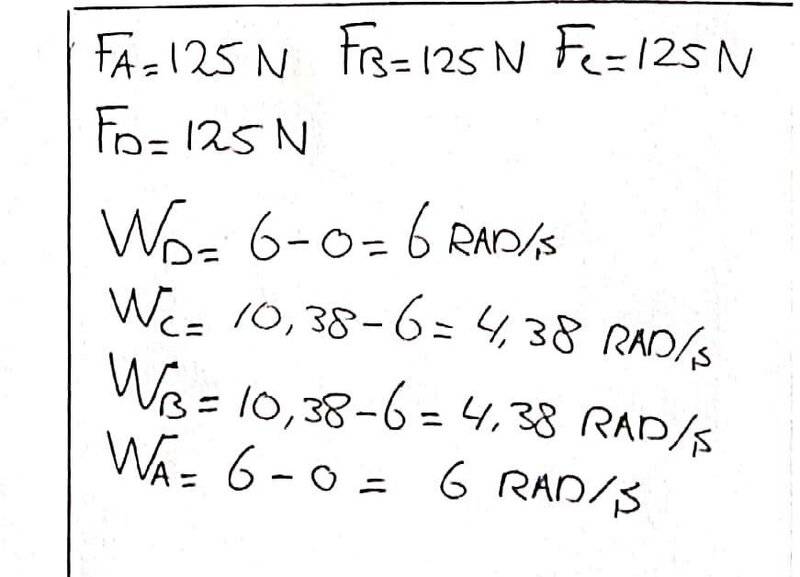 FA=125 N FB=125 N Fc=125 N
FD=125 N
WD= 6-0=6 RAD/s
Wc= 10,38-6= 4,38 RAD/s
WB= 10,38-6= 4,38 RAD/s
WA= 6-0= 6 RAD/s